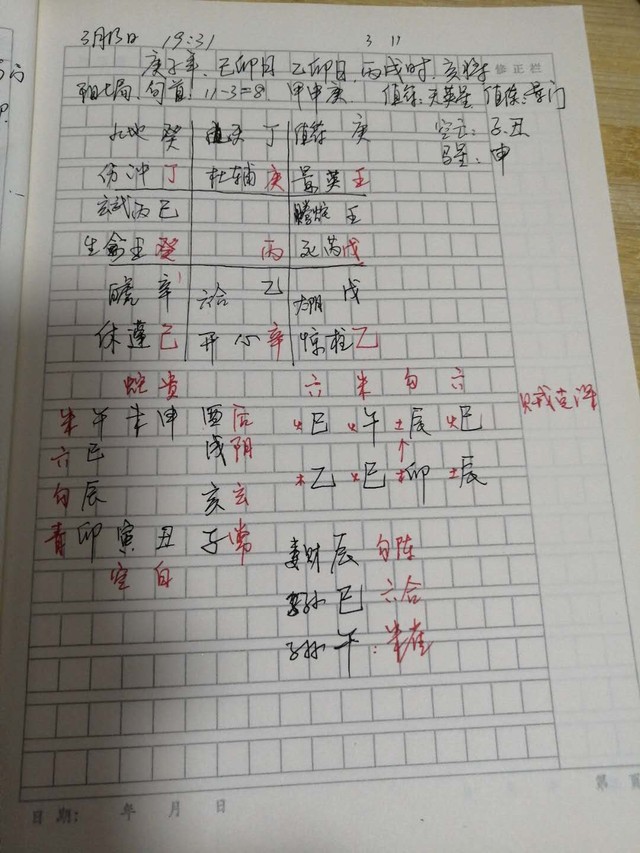 3月13日 19:31 3 11
庚子年 己卯月 乙卯日 丙戌时 亥将 修正栏
阳七局 旬首: 11-3=8 甲申庚 值符:天英星 值使:景门
九地 癸 九天 丁 值符 庚 空亡:子丑
伤冲 丁 杜辅 庚 景英 壬 马星:申
玄武 丙己 螣蛇 壬
生 癸 丙 死芮戊
白虎 辛 六合 乙 太阴 戊
休蓬己 开心辛 惊柱乙
蛇 贵 六 朱 勾 六
朱 午 未 申 酉后 火巳 火午 土辰 火巳
六巳 戌阴
木乙 火巳 木卯 土辰
勾辰 亥玄
青卯 寅 丑 子常
空 白
妻财 辰 勾陈
子孙 巳 六合
子孙 午: 朱雀
日期: 年 月 日 第 页